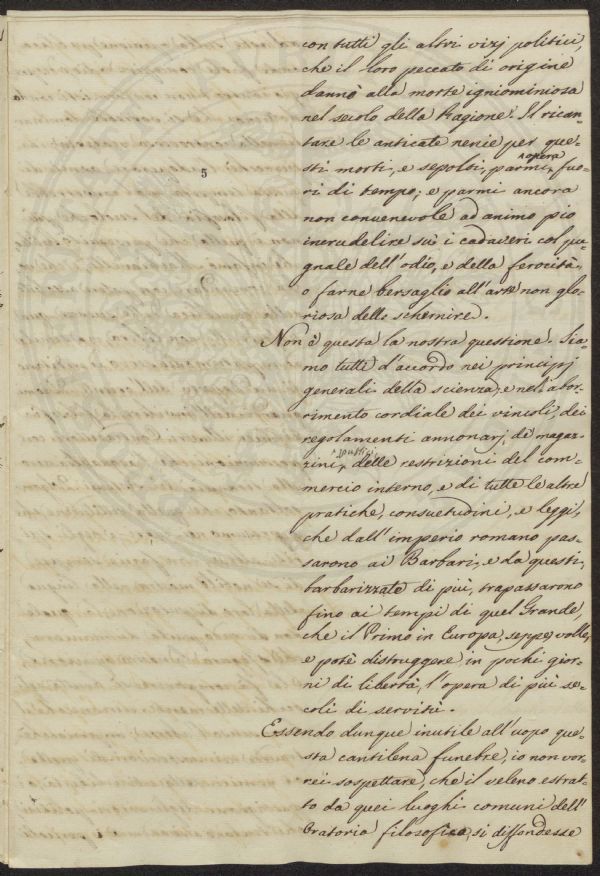 con tutti gli altri vizj politici,
che il loro peccato di origine
dannò alla morte igniominiosa
nel secolo della Ragione. Il rican-
tare le anticate nenie per que-
sti morti, e sepolti, parmi opera fuo-
ri di tempo; e parmi ancora
non convenevole ad animo pio
incrudelire sù i cadaveri col pu-
gnale dell'odio, e della ferocità,
o farne bersaglio all'arte non glo-
riosa dello schernire.
Non è questa la nostra questione. Sia-
mo tutti d'accordo nei principj
generali della scienza, e nel abor-
rimento cordiale dei vincoli, dei
regolamenti annonarj, dè magaz-
zini, delle restrizioni del com-
mercio interno, e di tutte le altre
pratiche, consuetudini, e leggi,
che dall'imperio romano pas-
sarono ai Barbari, e da questi,
barbarizzate di più, trapassarono
fino ai tempi di quel Grande,
che il Primo in Europa, seppe, volle,
e potè distruggere, in pochi gior-
ni di libertà, l'opera di più se-
coli di servitù.
Essendo dunque inutile all'uopo que-
sta cantilena funebre, io non vor-
rei sospettare, che il veleno estrat-
to da quei luoghi comuni dell'
Oratoria filosofica, si diffondesse
5